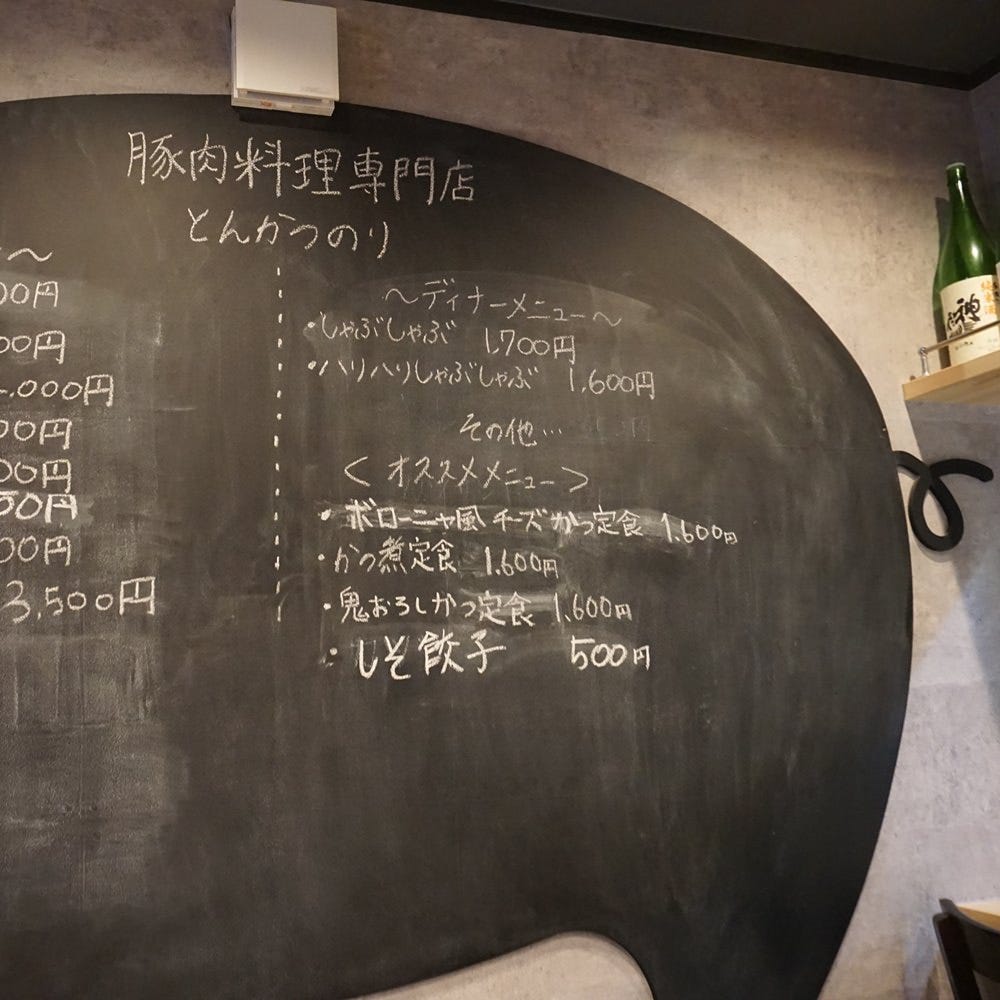 豚肉料理専門店
とんかつのり
〜
00円
00円
000円
00円
00円
50円
00円
3,500円
〜ディナーメニュー〜
・しゃぶしゃぶ 1,700円
・ハリハリしゃぶしゃぶ 1,600円
その他…
< オススメメニュー >
・ボローニャ風チーズかつ定食 1,600円
・かつ煮定食 1,600円
・鬼おろしかつ定食 1,600円
・しそ餃子 500円